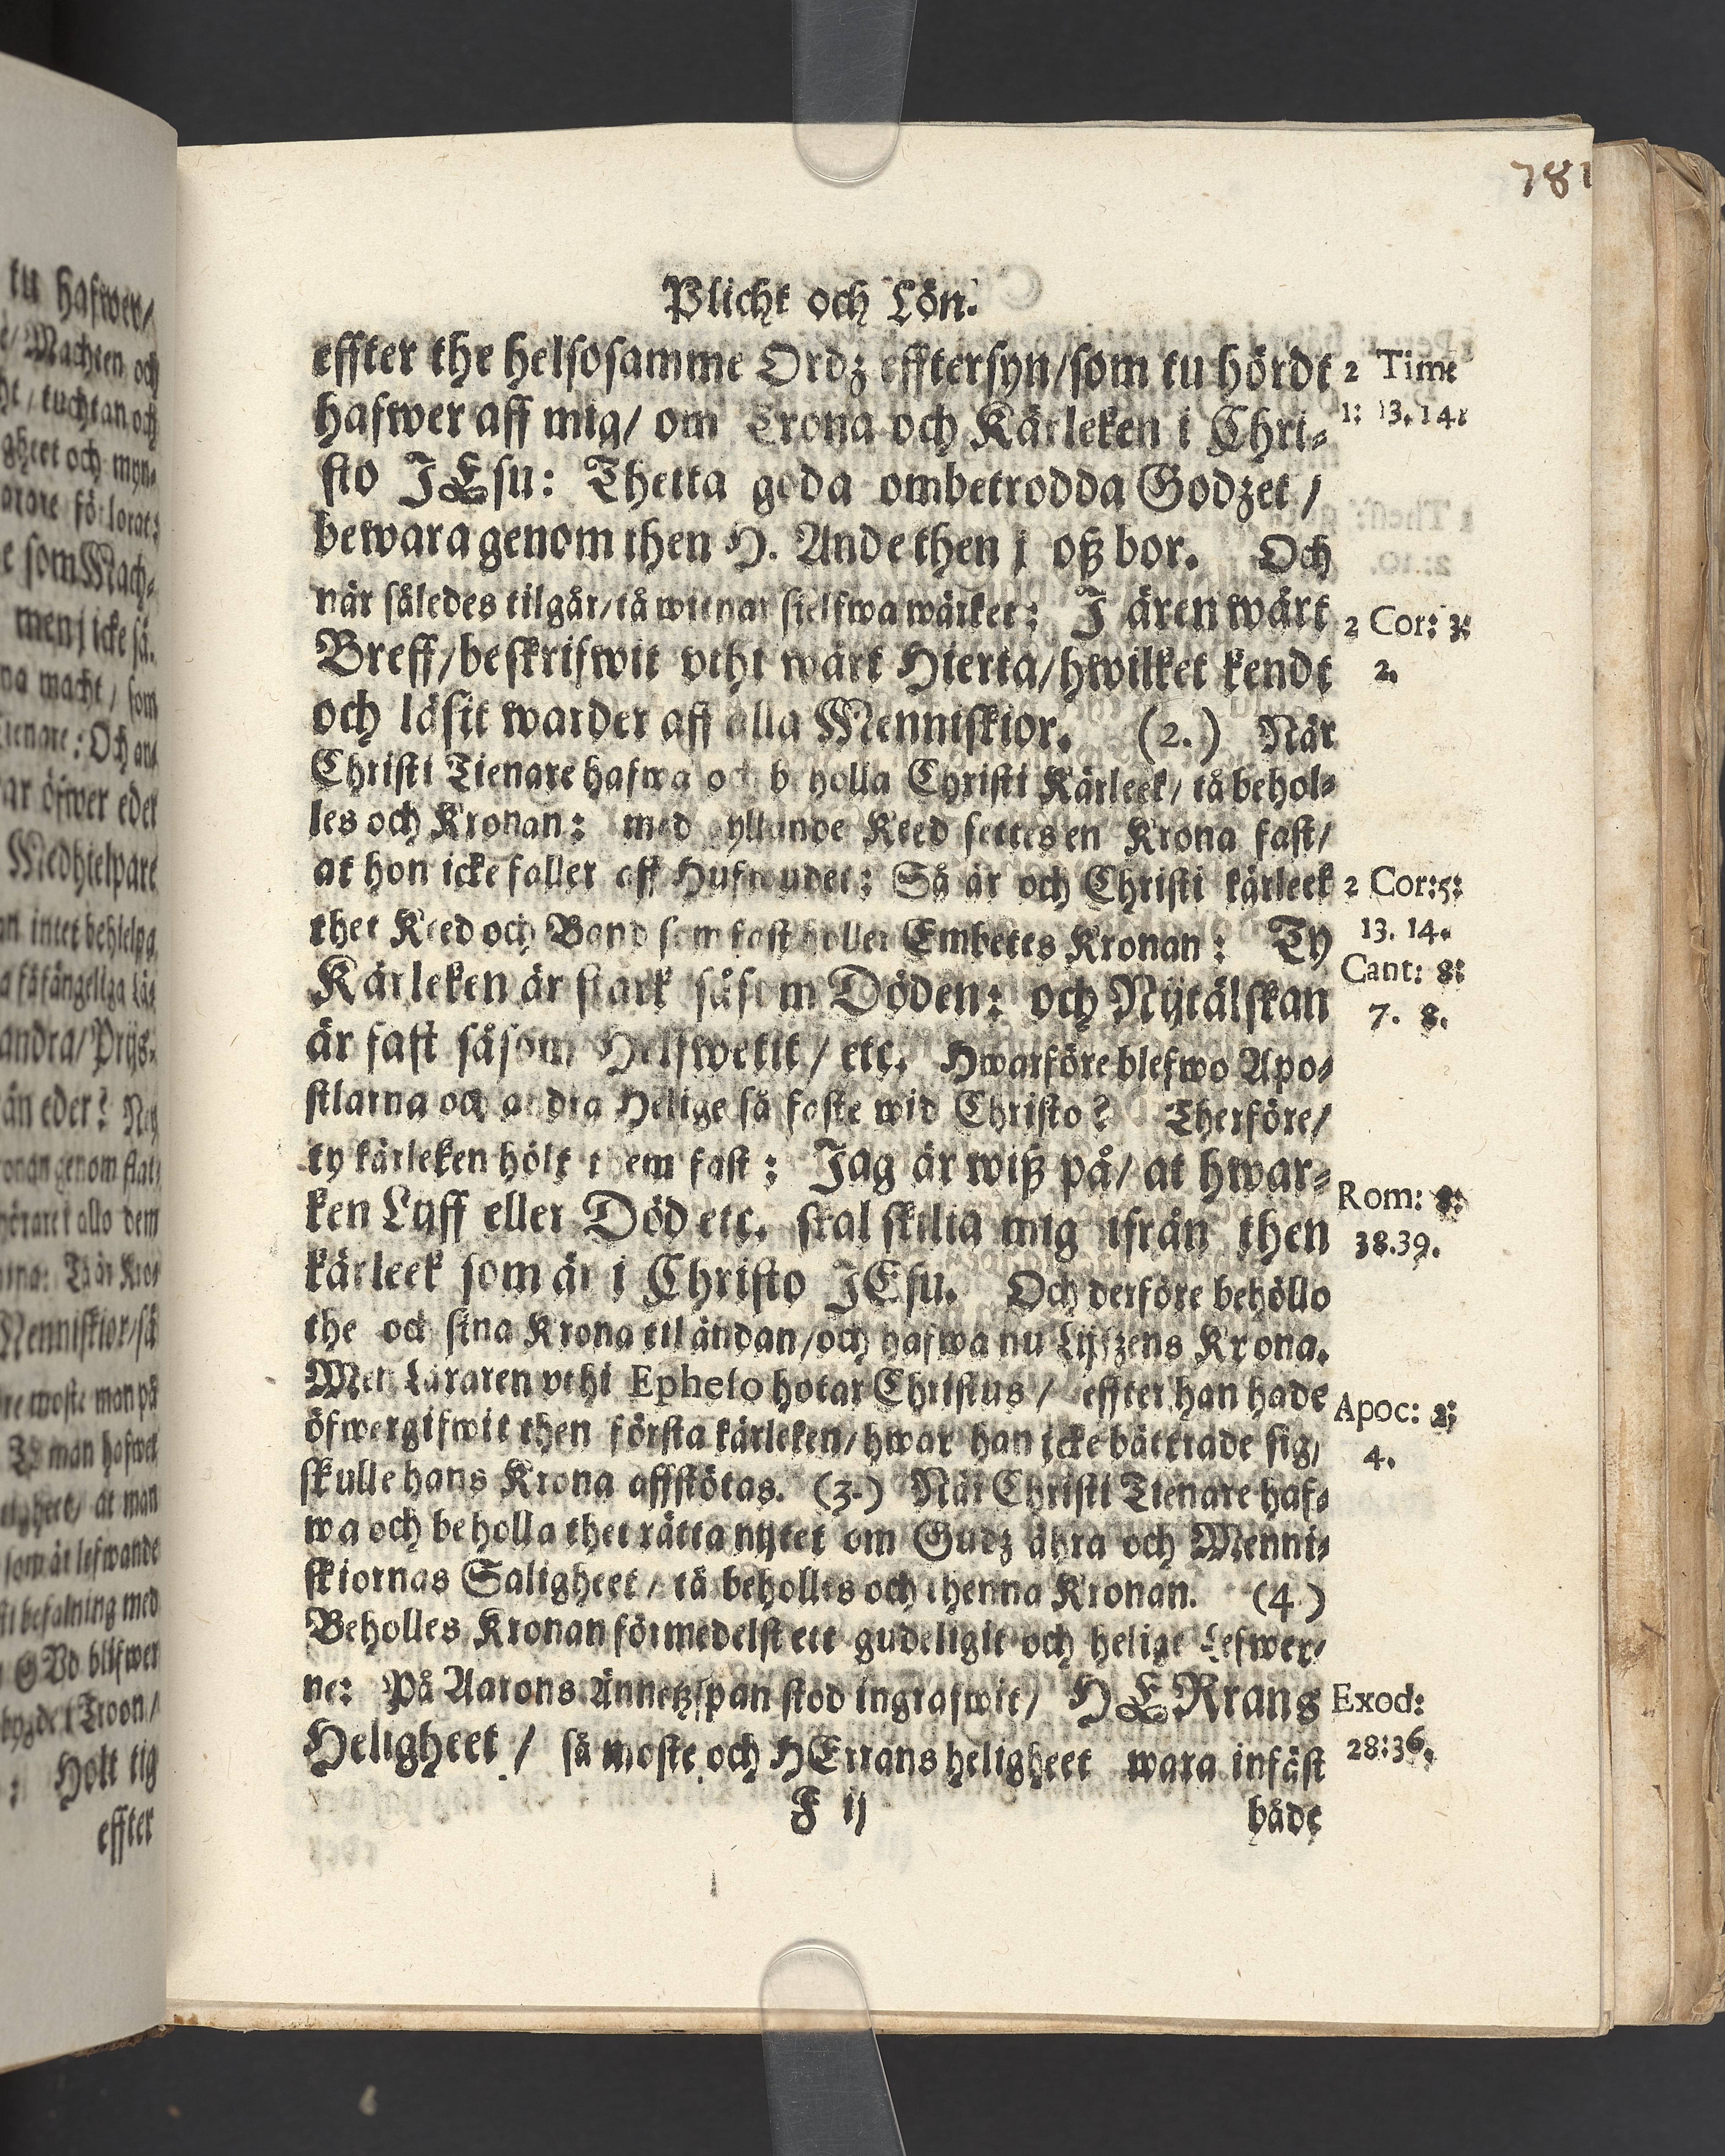 781
Plicht och Lön.
effter the helsosamme Ordz efftersyn/som tu hördt
hafwer aff mig/ om Trona och Kärleken i Chri-
sto JEsu: Thetta goda ombetrodda Godzet /
bewara genom then H. Ande then j oß bor. Och
när således tilgår/tå witnar sielfwa wärket: J ären wårt
Breff/beskrifwit vthi wårt Hierta/hwilket kendt
och läsit warder aff alla Menniskior. (2.) När
Christi Tienare hafwa och beholla Christi Kärleek/ tå behol-
les och Kronan: med gyllande Keed settes en Krona fast/
at hon icke faller aff Hufwudet: Så är och Christi kärleek
thet Keed och Band som fast holler Embetes Kronan: Ty
Kärleken är stark såsom Döden: och Nijtälskan
är fast såsom Helfwetit / etc. Hwarföre blefwo Apo-
stlarna och andra Helige så faste wid Christo? Therföre/
ty kärleken hölt them fast: Jag är wiß på/ at hwar-
ken Lijff eller Död etc. skal skilia mig ifrån then
kärleek som är i Christo JEsu. Och derföre behöllo
the och sina Krona til ändan/och hafwa nu Lijfzens Krona.
Men Läraren vthi Epheso hotar Christus / effter han hade
öfwergifwit then första kärleken/hwar han icke bättrade sig/
skulle hans Krona affstötas. (3.) När Christi Tienare haf-
wa och beholla thet rätta nijtet om Gudz ähra och Menni-
skiornas Saligheet / tå beholles och thenna Kronan. (4)
Beholles Kronan förmedelst ett gudeligit och helige Lefwer-
ne: På Aarons Ännetzspan stod ingrafwit/ HERrans
Heligheet / så moste och HErrans heligheet wara infäst
F ij
både
2 Tim:
1: 13. 14.
2 Cor: 3:
2.
2 Cor:5:
13. 14.
Cant: 8:
7. 8.
Rom: 8:
38.39.
Apoc: 2:
4.
Exod:
28:36.
tu hafwer/
Machten och
tuchtan och
gheet och myn-
förlorat:
som Mach-
men j icke så.
na macht / som
Och an-
öfwer eder
Medhielpare
intet behielpa
fåfängeliga
andra/ Prijs-
ån eder?
genom
allo dem
Menniskior/så
moste man på
man hafwer
at man
som är lefwande
befalning med
GVd blifwer
Troon/
Holt tig
effter